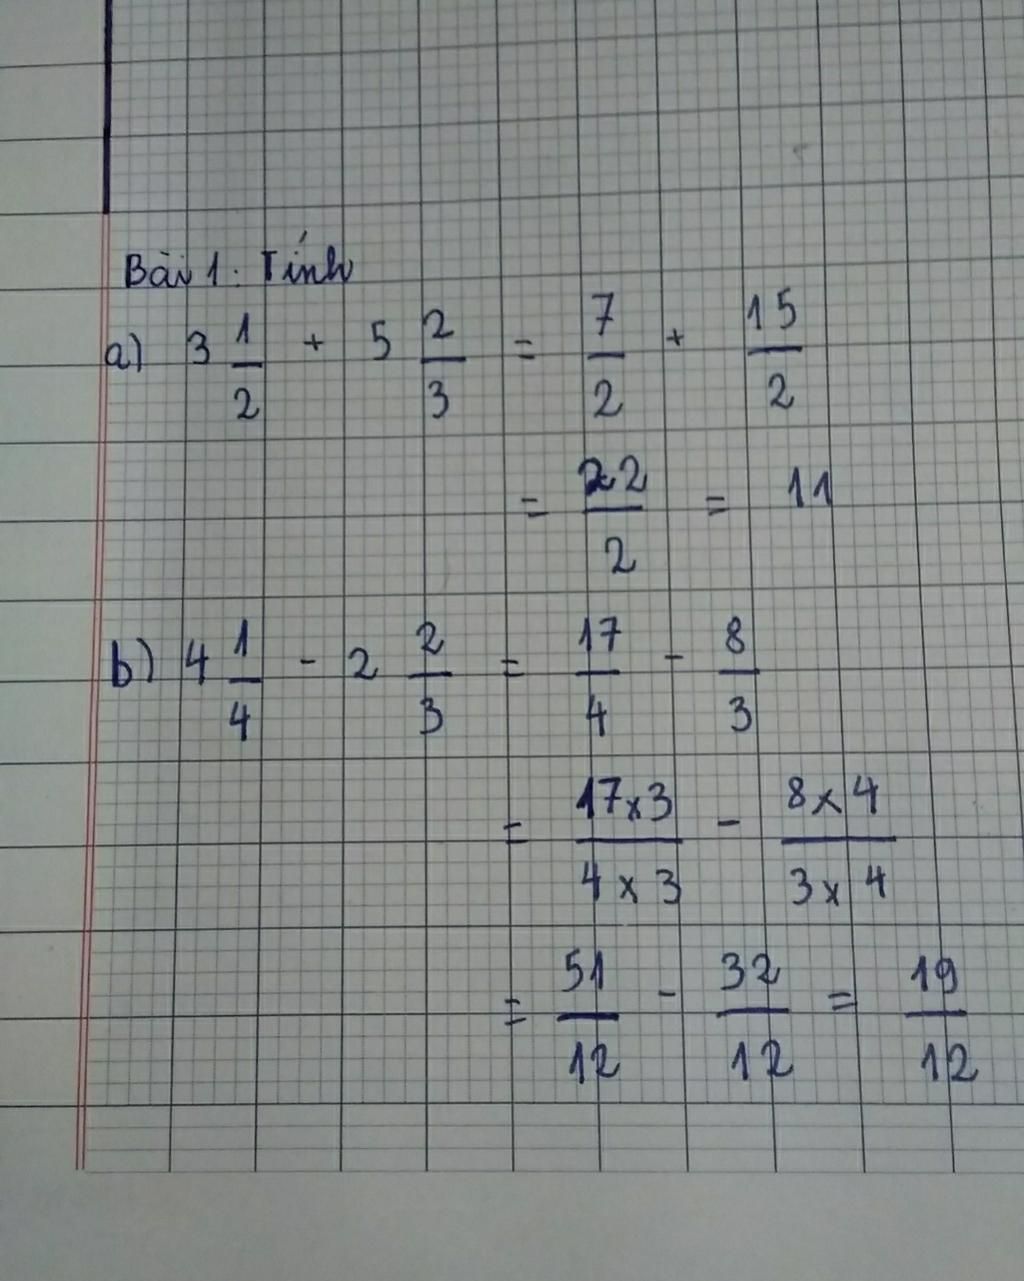 Bài 1: Tính
a) 3 1/2 + 5 2/3 = 7/2 + 15/2
= 22/2 = 11
b) 4 1/4 - 2 2/3 = 17/4 - 8/3
= 17x3/4x3 - 8x4/3x4
= 51/12 - 32/12 = 19/12